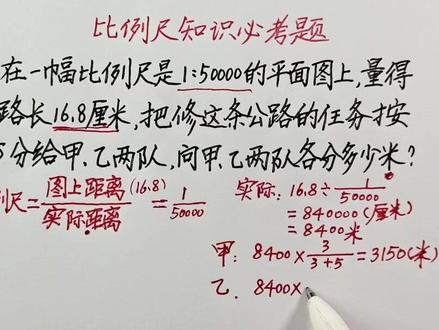 比例尺知识必考题
在一幅比例尺是1:50000的平面图上,量得
路长16.8厘米,把修这条公路的任务按
5分给甲、乙两队,问甲、乙两队各分多少米?
例尺=图上距离(16.8)/实际距离=1/50000
实际:16.8÷1/50000
=840000(厘米)
=8400米
甲:8400×3/3+5=3150(米)
乙.8400×